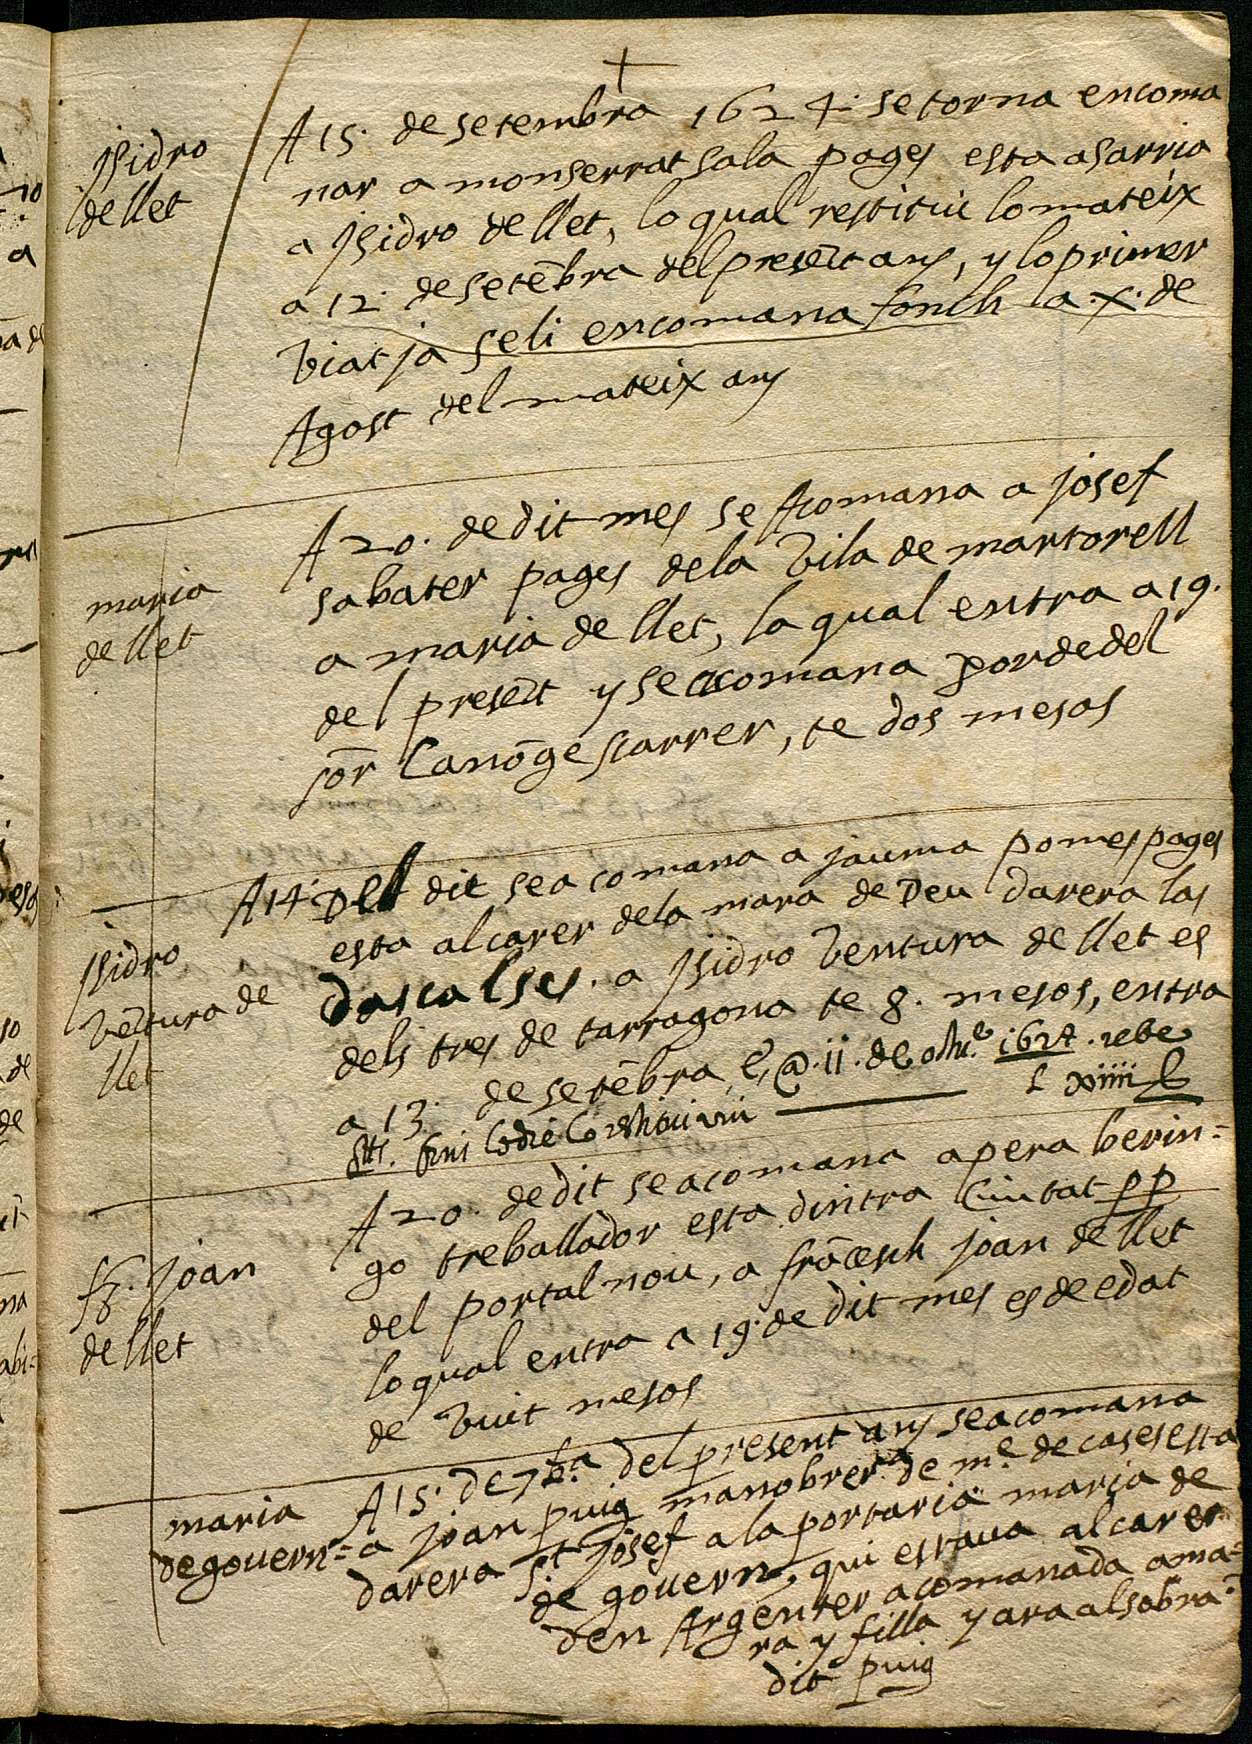 +
Isidro
de llet
A 15. de setembra 1624. se torna encoma
nar a monserrat sala pages esta a sarria
a Isidro de llet, lo qual restituí lo mateix
a 12. de setēbra del presēt any, y lo primer
viatja seli encomana fonch a .x. de
Agost del mateix any
maria
de llet
A 20. de dit mes se Acomana a josef
sabater pages dela vila de martorell
a maria de llet, la qual entra a 19.
del presēt y se acomana p orde del
sōr Canōge scarrer, te dos mesos
Isidro
vētura de
llet
A 14. Del dit se acomana a jauma pomes pages
esta al carer dela mara de Deu darera las
dascalses. a Isidro ventura de llet es
dels tres de tarragona te 8. mesos, entra
a 13. de setēbra, @ .11. de 1624. rebe
xiiii
fz. joan
de llet
A 20. de dit se acomana a pera berin-
go treballador esta dintra Ciutat pp
del portal nou, a frācesch joan de llet
lo qual entra a 19. de dit mes es de edat
de vuit mesos
maria
de govern=
A 15. de 7bra del present any se acomana
a joan puig manobrer de mᵉ de cases esta
darera St josef a la portaria maria de
de govern, qui estava al carer
den Argenter acomanada a ma-
ra y filla y ara al sobra-
dit puig